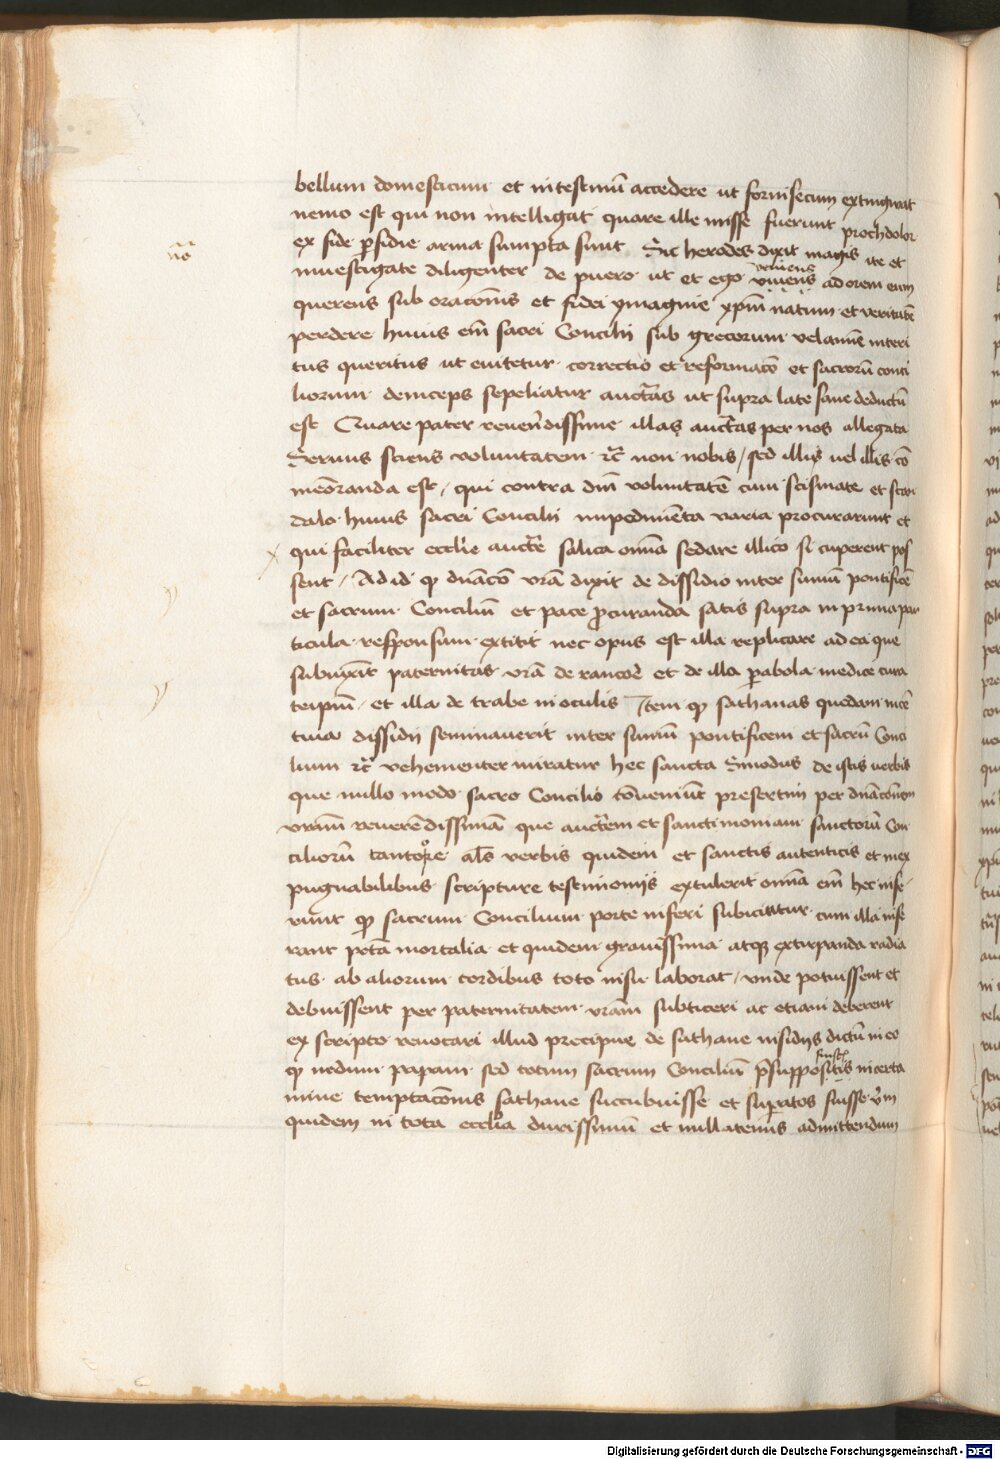 bellum domesticum et intestinū accedere ut forinsecum extinguat
nemo est qui non intelligat quare ille misse fuerunt prochdolor
no
ex fide pfidie arma sumpta sunt Sic herodes dixit magis ite et
inuestigate diligenter de puero ut et ego viuens adorem eum
veniens
querens sub oracōnis et fidei ymagine xpm̄ natum et veritatē
perdere huius em̄ sacri Concilii sub grecorum velamē interi
tus queritus ut euitetur correctio et reformacō et sacrorū conci
liorum deinceps sepeliatur auctās ut supra late sane deductū
est Quare pater reuerēdissime illas auctās per nos allegata
Seruus sciens voluntatem rc̄ non nobis / sed illis uel illis cō
meōranda est / qui contra dm̄ voluntatē cum scismate et scan
dalo huius sacri Concilii impedimēta varia procurarunt et
qui faciliter eccl̄ie auctē salica om̄ia sedare illico si cuperent pos
sent / Ad id qd dnācō vrā dixit de dissidio inter sumū pontificē
et sacrum Conciliū et pace pcuranda satis supra in prima par
ticula responsum extitit nec opus est illa replicare ad ea que
subiūxit paternitas vrā de rancore et de illa pabola medice cura
teipm̄ / et illa de trabe in oculis Item qd sathanas quedam incē
tiua dissidij seminauerit inter sumū pontificem et sacrū Conci
lium rc̄ vehementer miratur hec sancta Sinodus de istis uerbis
que nullo modo sacro Concilio cōueniūt presertim per dnācōem
vram̄ reuerēdissimā que auctēm et sanctimoniam sanctorū Con
ciliorū tantope al̄s verbis quidem et sanctis autenticis et inex
pugnabilibus scripture testimoniis extulerit om̄ia em̄ hec infe
runt qd sacrum Concilium porte inferi subicitur cum illa infe
rant pctā mortalia et quidem grauissima atqz extirpanda radia
tus ab aliorum cordibus toto nisu laborat / vnde potuissent et
debuissent per paternitatem vram̄ subticeri ac etiam deberent
ex scripto reuocari illud precipue de sathane insidijs dictū in eo
qd nedum papam sed totum sacrum Conciliū p̄suppositis in certa
mine temptacōnis sathane succubuisse et supatos fuisse
quidem in tota eccl̄ia durissimū et nullatenus admittendum
Digitalisierung gefördert durch die Deutsche Forschungsgemeinschaft - DFG